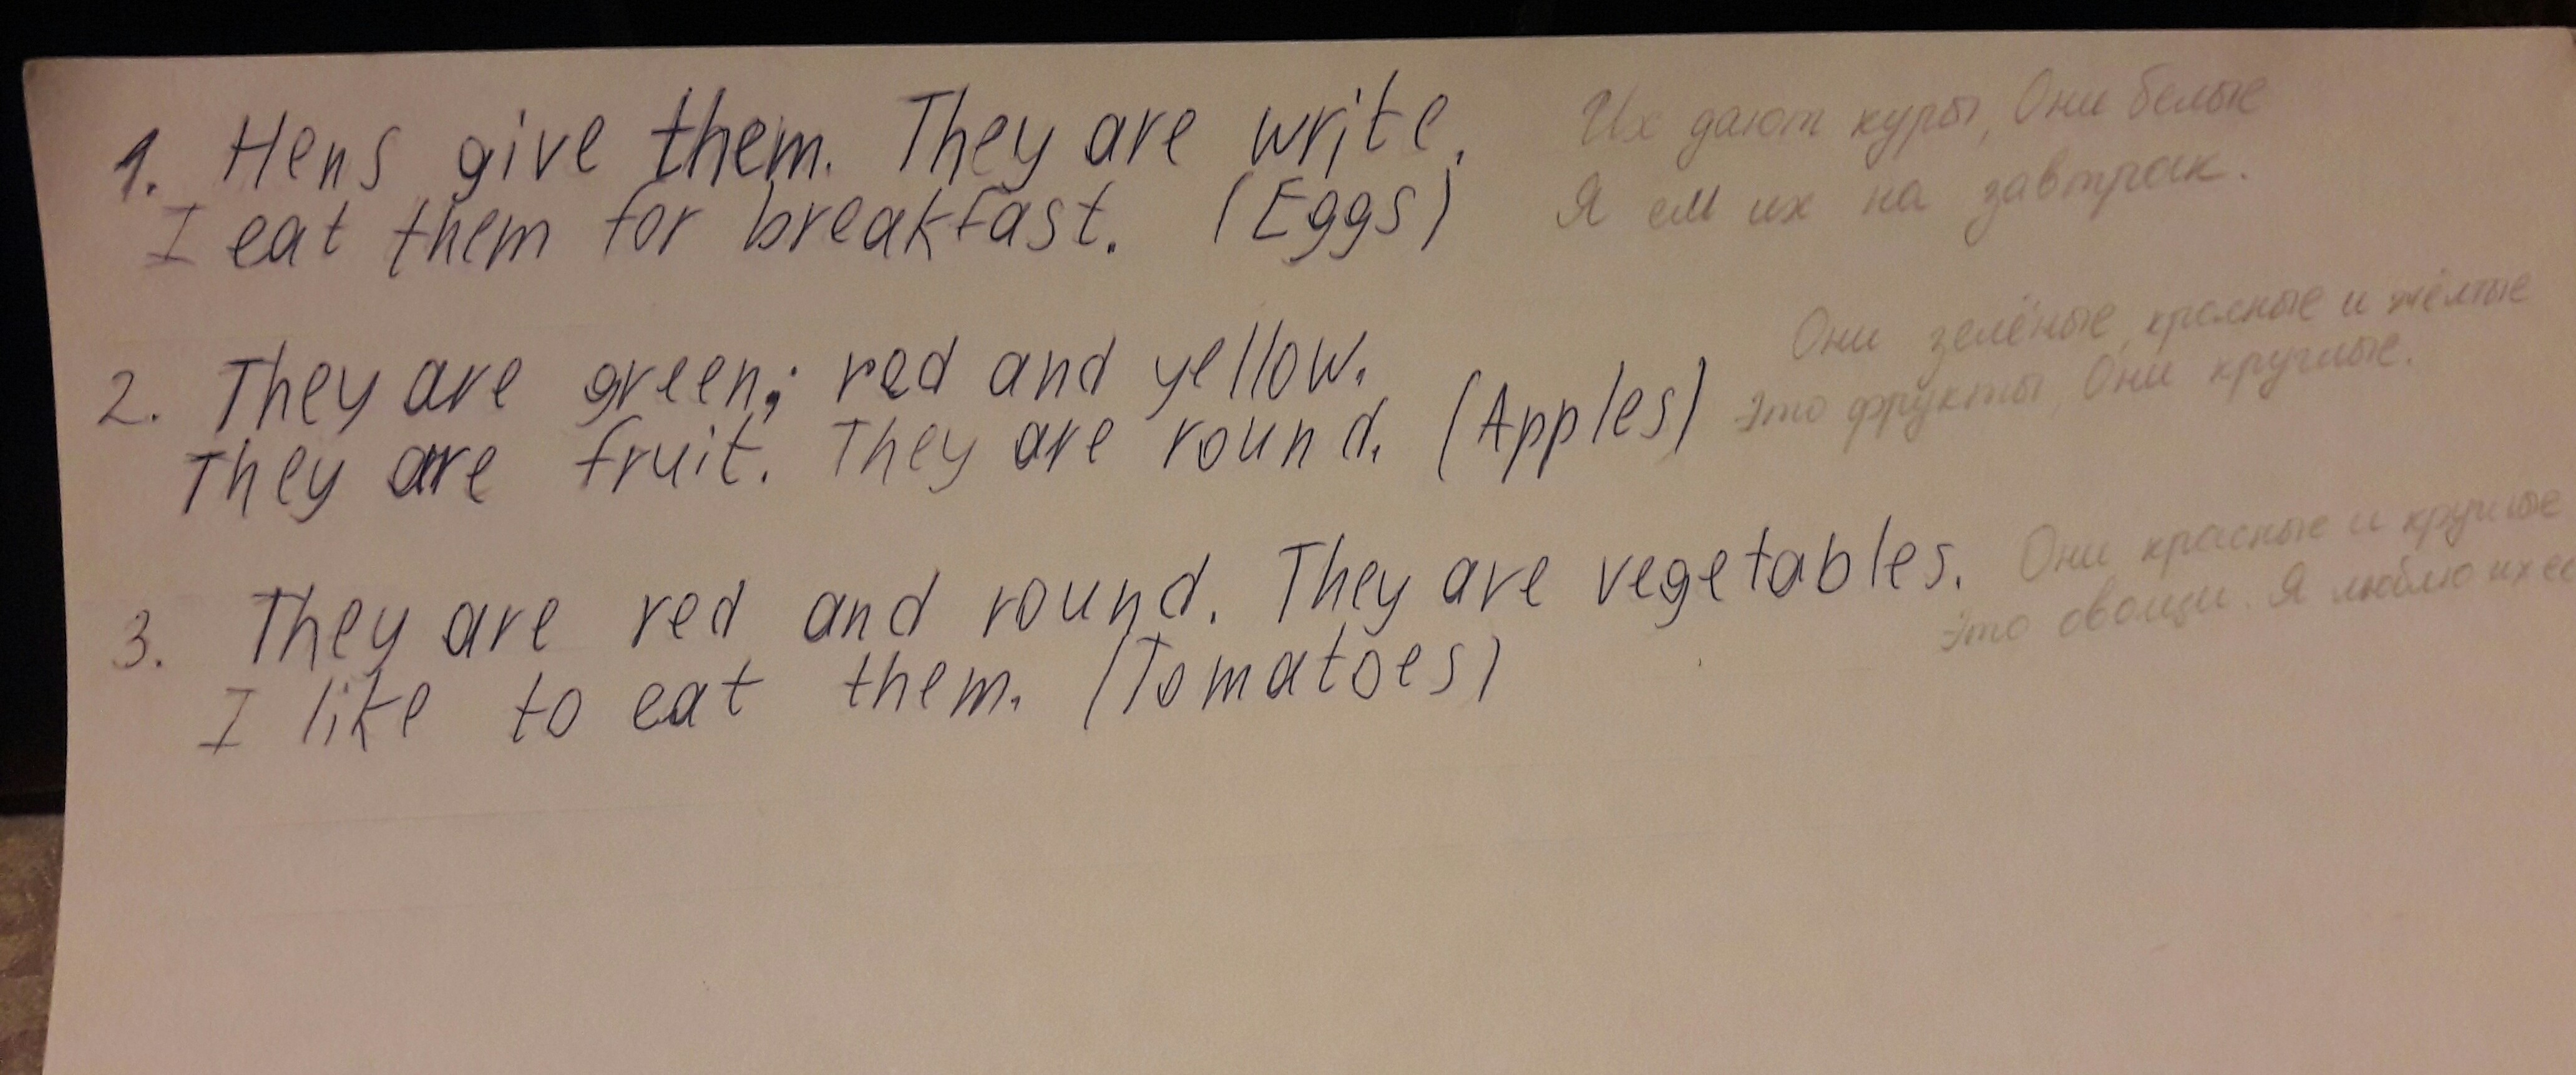 1. Hens give them. They are write. Их дают куры, Они белые
I eat them for breakfast. (Eggs) Я ем их на завтрак.
2. They are green; red and yellow. Они зелёные, красные и жёлтые
They are fruit. They are round. (Apples) Это фрукты, Они круглые.
3. They are red and round. They are vegetables. Они красные и круглые
I like to eat them. (Tomatoes) Это овощи. Я люблю их